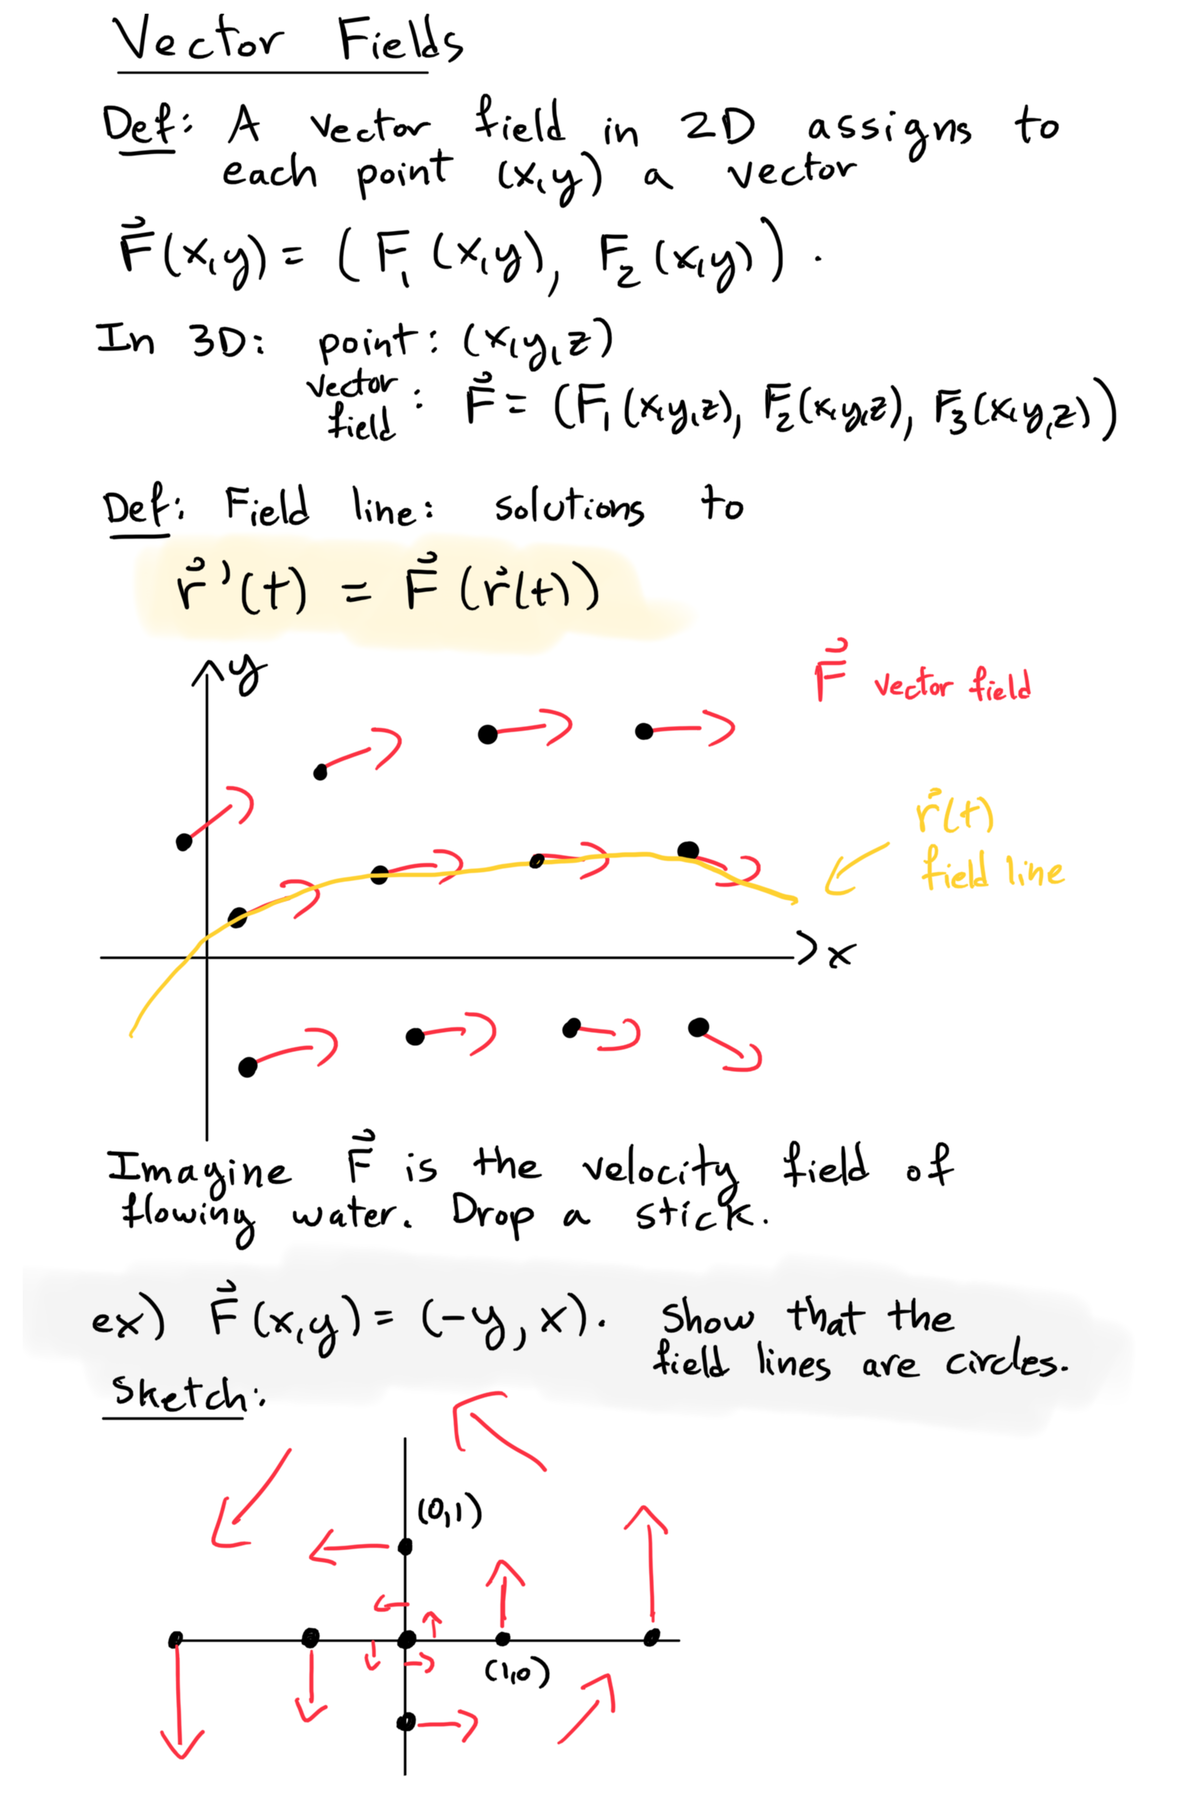 Vector Fields
Def: A vector field in 2D assigns to
each point (x,y) a vector
F⃗(x,y) = (F₁(x,y), F₂(x,y)).
In 3D: point: (x,y,z)
vector field: F⃗ = (F₁(x,y,z), F₂(x,y,z), F₃(x,y,z))
Def: Field line: solutions to
r⃗'(t) = F⃗(r⃗(t))
y
F⃗ vector field
r⃗(t)
field line
x
Imagine F⃗ is the velocity field of
flowing water. Drop a stick.
ex) F⃗(x,y) = (-y, x). Show that the
field lines are circles.
Sketch:
(0,1)
(1,0)